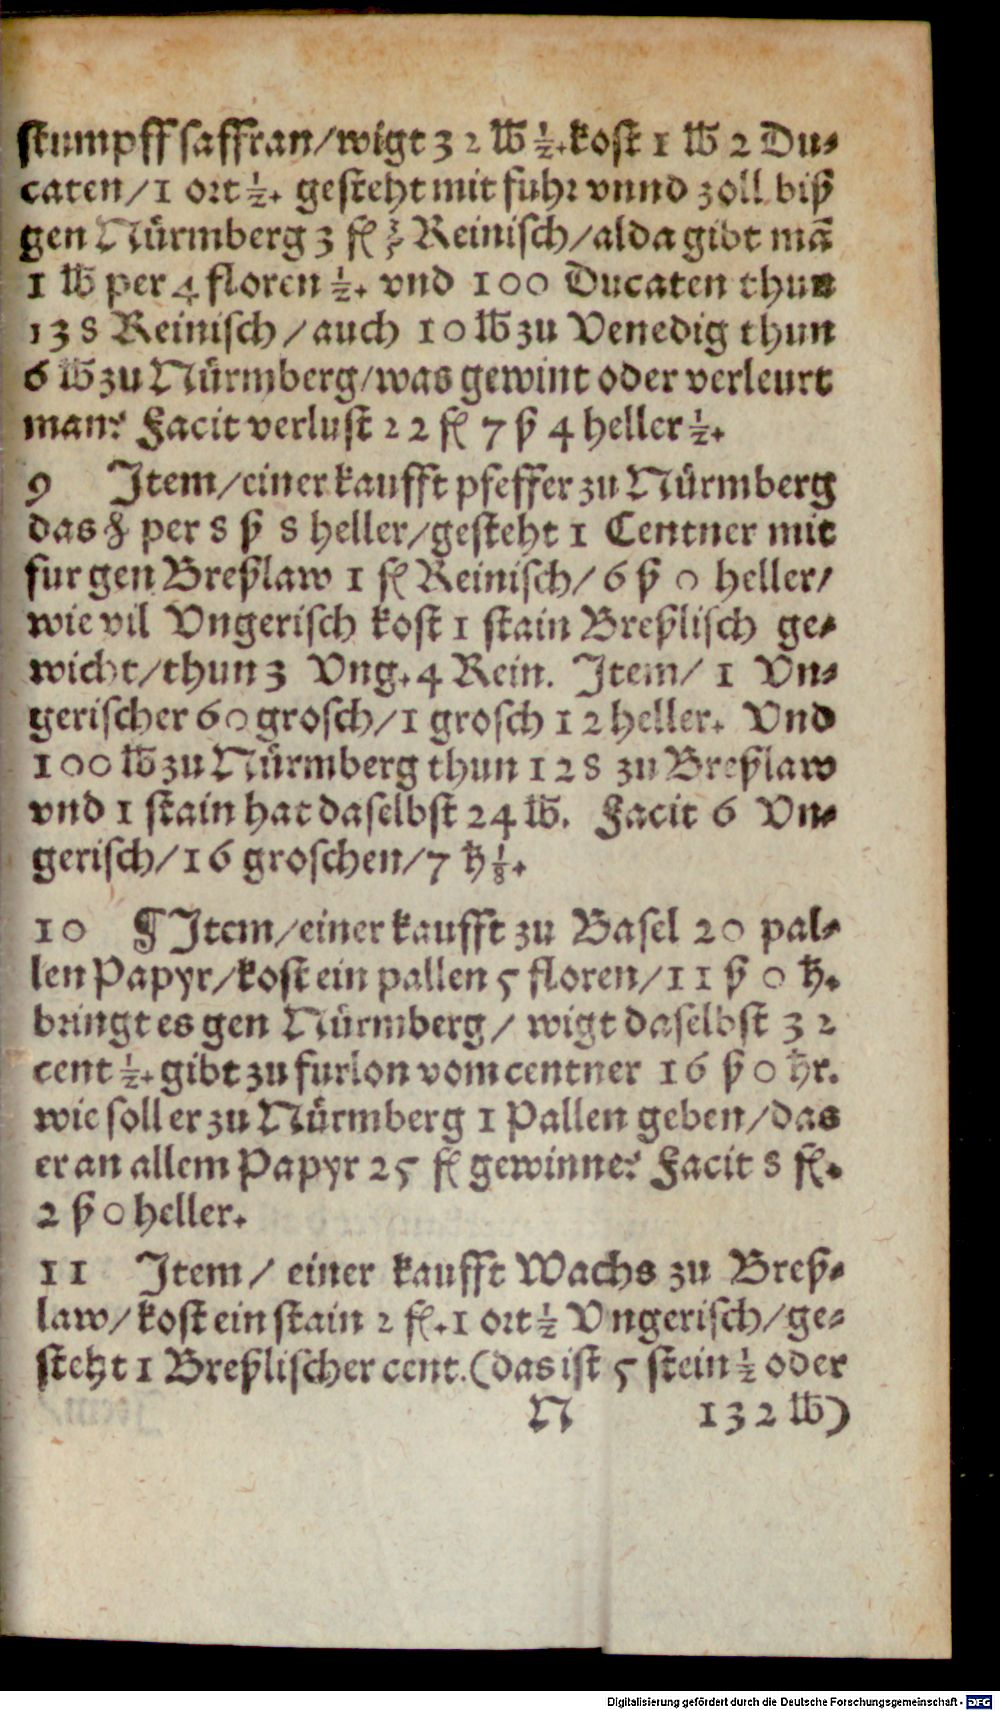 stumpff saffran/wigt 32 ℔ ½. kost 1 ℔ 2 Du-
caten/1 ort ½. gesteht mit fuhr vnnd zoll biß
gen Nürmberg 3 fl ⅔ Reinisch/alda gibt mā
1 ℔ per 4 floren ½. vnd 100 Ducaten thun
138 Reinisch/auch 10 ℔ zu Venedig thun
6 ℔ zu Nürmberg/was gewint oder verleurt
man? Facit verlust 22 fl 7 ß 4 heller ½.
9 Item/einer kaufft pfeffer zu Nürmberg
das ℔ per 8 ß 8 heller/gesteht 1 Centner mit
fur gen Breßlaw 1 fl Reinisch/6 ß 0 heller/
wie vil Vngerisch kost 1 stain Breßlisch ge-
wicht/thun 3 Vng. 4 Rein. Item/ 1 Vn-
gerischer 60 grosch/1 grosch 12 heller. Vnd
100 ℔ zu Nürmberg thun 128 zu Breßlaw
vnd 1 stain hat daselbst 24 ℔. Facit 6 Vn-
gerisch/16 groschen/7 hꝉ ⅛.
10 ¶ Item/einer kaufft zu Basel 20 pal-
len Papyr/kost ein pallen 5 floren/11 ß 0 hꝉ.
bringt es gen Nürmberg/ wigt daselbst 32
cent ½. gibt zu furlon vom centner 16 ß 0 hr.
wie soll er zu Nürmberg 1 Pallen geben/das
er an allem Papyr 25 fl gewinne? Facit 8 fl.
2 ß 0 heller.
11 Item/ einer kaufft Wachs zu Breß-
law/kost ein stain 2 fl. 1 ort ½ Vngerisch/ge-
steht 1 Breßlischer cent. (das ist 5 stein ½ oder
N 132 ℔)
Digitalisierung gefördert durch die Deutsche Forschungsgemeinschaft - DFG